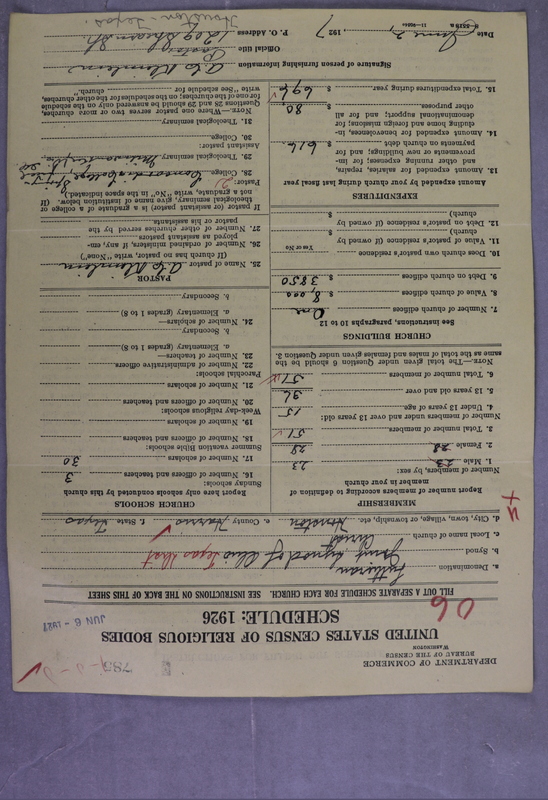 DEPARTMENT OF COMMERCE
BUREAU OF THE CENSUS
WASHINGTON
785
JUN 6 - 1927
UNITED STATES CENSUS OF RELIGIOUS BODIES
SCHEDULE: 1926
06
FILL OUT A SEPARATE SCHEDULE FOR EACH CHURCH. SEE INSTRUCTIONS ON THE BACK OF THIS SHEET
a. Denomination Lutheran
b. Synod Joint Synod of Ohio Texas Dist
c. Local name of church Christ
d. City, town, village, or township, etc. Houston e. County Harris f. State Texas
MEMBERSHIP
Report number of members according to definition of
member in your church
Number of members, by sex:
1. Male 23 23
2. Female 28 28
3. Total number of members. 51
Number of members under and over 13 years old:
4. Under 13 years of age 15
5. 13 years old and over 36
6. Total number of members 51
NOTE.—The total given under Question 6 should be the
same as the total of males and females given under Question 3.
CHURCH BUILDINGS
See instructions, paragraphs 10 to 12
7. Number of church edifices One
8. Value of church edifices $ 8,000
9. Debt on church edifices $ 3850
10. Does church own pastor's residence Yes or No
11. Value of pastor's residence (if owned by
church) $
12. Debt on pastor's residence (if owned by
church) $
EXPENDITURES
Amount expended by your church during last fiscal year
13. Amount expended for salaries, repairs,
and other running expenses; for im-
provements or new buildings; and for
payments on church debt $ 616
14. Amount expended for benevolences, in-
cluding home and foreign missions; for
denominational support; and for all
other purposes $ 80
15. Total expenditures during year $ 696
CHURCH SCHOOLS
Report here only schools conducted by this church
Sunday schools:
16. Number of officers and teachers 3
17. Number of scholars 30
Summer vacation Bible schools:
18. Number of officers and teachers
19. Number of scholars
Week-day religious schools:
20. Number of officers and teachers
21. Number of scholars
Parochial schools:
22. Number of administrative officers
23. Number of teachers—
a. Elementary (grades 1 to 8)
b. Secondary
24. Number of scholars—
a. Elementary (grades 1 to 8)
b. Secondary
PASTOR
25. Name of pastor
(If church has no pastor, write "None")
26. Number of ordained ministers, if any, em-
ployed as assistant pastors
27. Number of other churches served by the
pastor or his assistants
If pastor (or assistant pastor) is a graduate of a college or
theological seminary, give name of institution below. (If
not a graduate, write "No" in the space indicated.)
Pastor:
28. College
29. Theological seminary
Assistant pastor:
30. College
31. Theological seminary
NOTE.—Where one pastor serves two or more churches,
Questions 28 and 29 should be answered only on the schedule
for one of the churches; on the schedule for the other churches,
write "See schedule for church."
Signature of person furnishing information
Official title Pastor
P. O. Address
Houston - Texas.
Date June 2, 1927